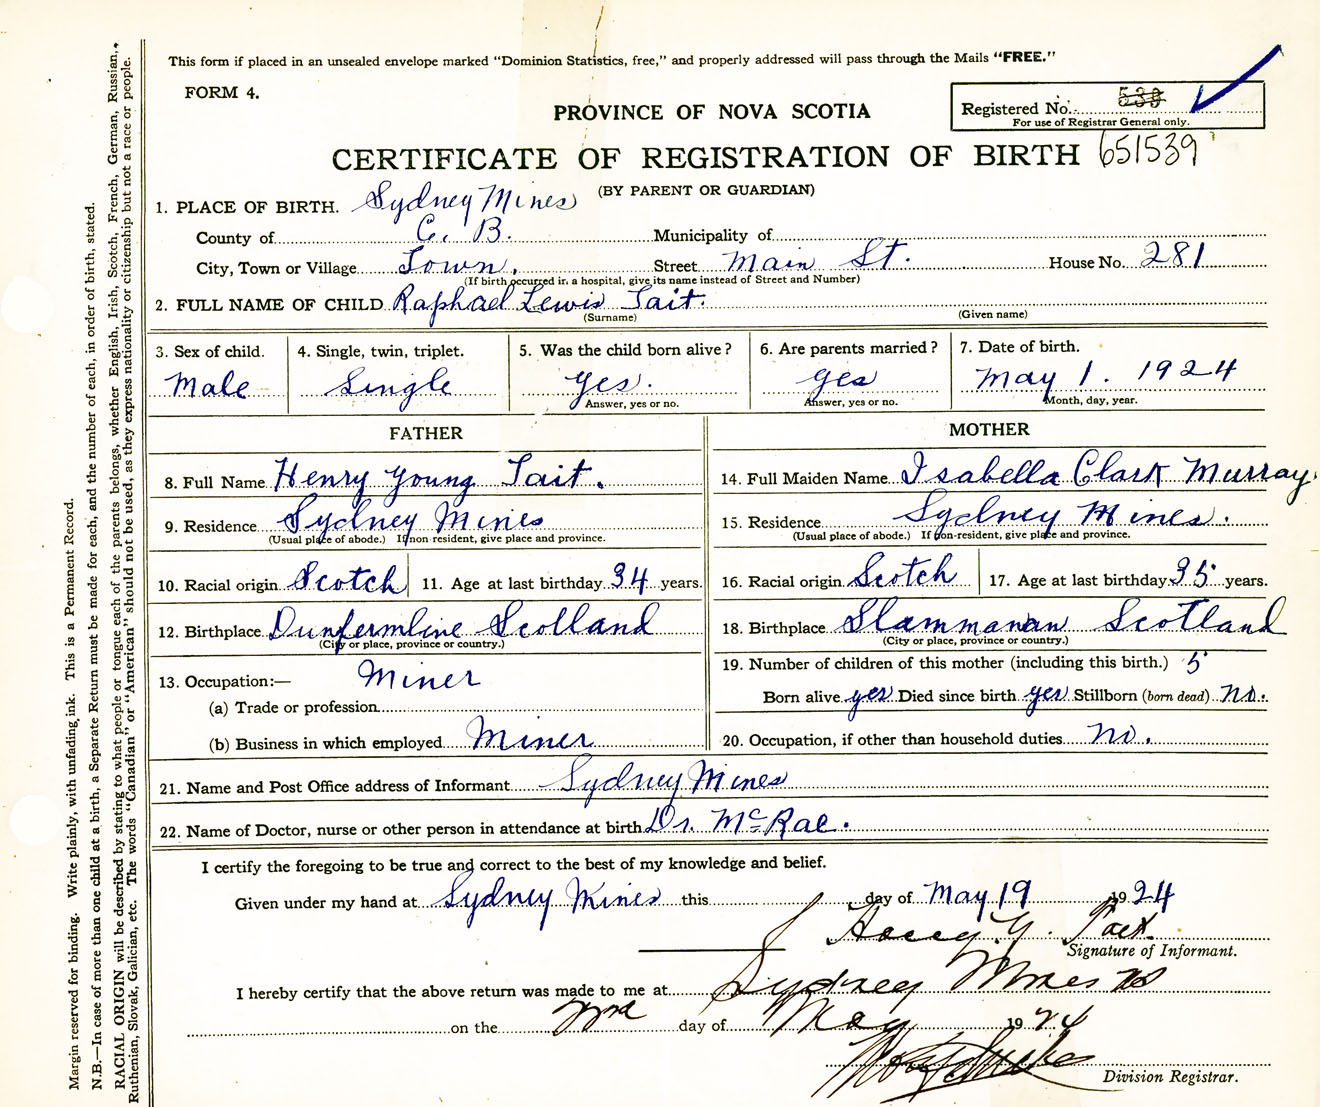 This form if placed in an unsealed envelope marked "Dominion Statistics, free," and properly addressed will pass through the Mails "FREE."
FORM 4.
PROVINCE OF NOVA SCOTIA
Registered No. 539
For use of Registrar General only.
CERTIFICATE OF REGISTRATION OF BIRTH 651539
(BY PARENT OR GUARDIAN)
1. PLACE OF BIRTH. Sydney Mines
County of C. B. Municipality of
City, Town or Village Town. Street Main St. House No. 281
(If birth occurred in a hospital, give its name instead of Street and Number)
2. FULL NAME OF CHILD Raphael Lewis Tait.
(Surname) (Given name)
3. Sex of child. 4. Single, twin, triplet. 5. Was the child born alive? 6. Are parents married? 7. Date of birth.
Male Single Yes. Yes May 1. 1924
Answer, yes or no. Answer, yes or no. Month, day, year.
FATHER MOTHER
8. Full Name Henry Young Tait. 14. Full Maiden Name Isabella Clark Murray.
9. Residence Sydney Mines 15. Residence Sydney Mines.
(Usual place of abode.) If non-resident, give place and province. (Usual place of abode.) If non-resident, give place and province.
10. Racial origin Scotch 11. Age at last birthday 34 years. 16. Racial origin Scotch 17. Age at last birthday 35 years.
12. Birthplace Dunfermline Scotland 18. Birthplace Slammanan Scotland
(City or place, province or country.) (City or place, province or country.)
13. Occupation:— Miner 19. Number of children of this mother (including this birth.) 5
(a) Trade or profession Born alive yes Died since birth yes Stillborn (born dead) no.
(b) Business in which employed Miner 20. Occupation, if other than household duties no.
21. Name and Post Office address of Informant Sydney Mines
22. Name of Doctor, nurse or other person in attendance at birth Dr. McRae.
I certify the foregoing to be true and correct to the best of my knowledge and belief.
Given under my hand at Sydney Mines this day of May 19 1924
Henry Y. Tait.
Signature of Informant.
I hereby certify that the above return was made to me at Sydney Mines NS
on the day of May 1924
Division Registrar.
Margin reserved for binding. Write plainly, with unfading ink. This is a Permanent Record.
N.B.—In case of more than one child at a birth, a Separate Return must be made for each, and the number of each, in order of birth, stated.
RACIAL ORIGIN will be described by stating to what people or tongue each of the parents belongs, whether English, Irish, Scotch, French, German, Russian,
Ruthenian, Slovak, Galician, etc. The words "Canadian" or "American" should not be used, as they express nationality or citizenship but not a race or people.